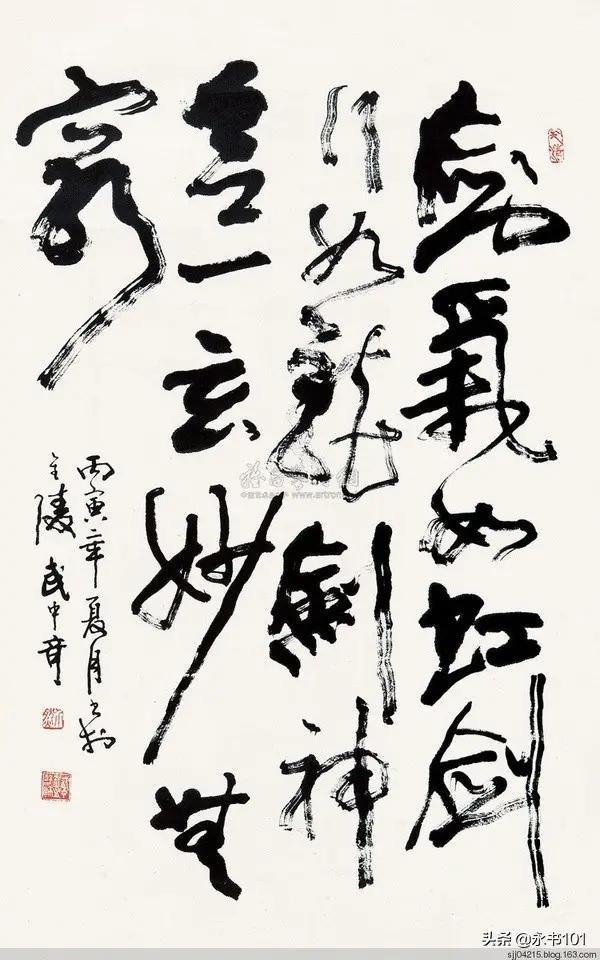 劍氣如虹劍
行如龍劍神
合一玄妙無
窮
丙寅年夏月書於
金陵 武中奇
www.artron
头条 @永书101
sjj04215.blog.163.com